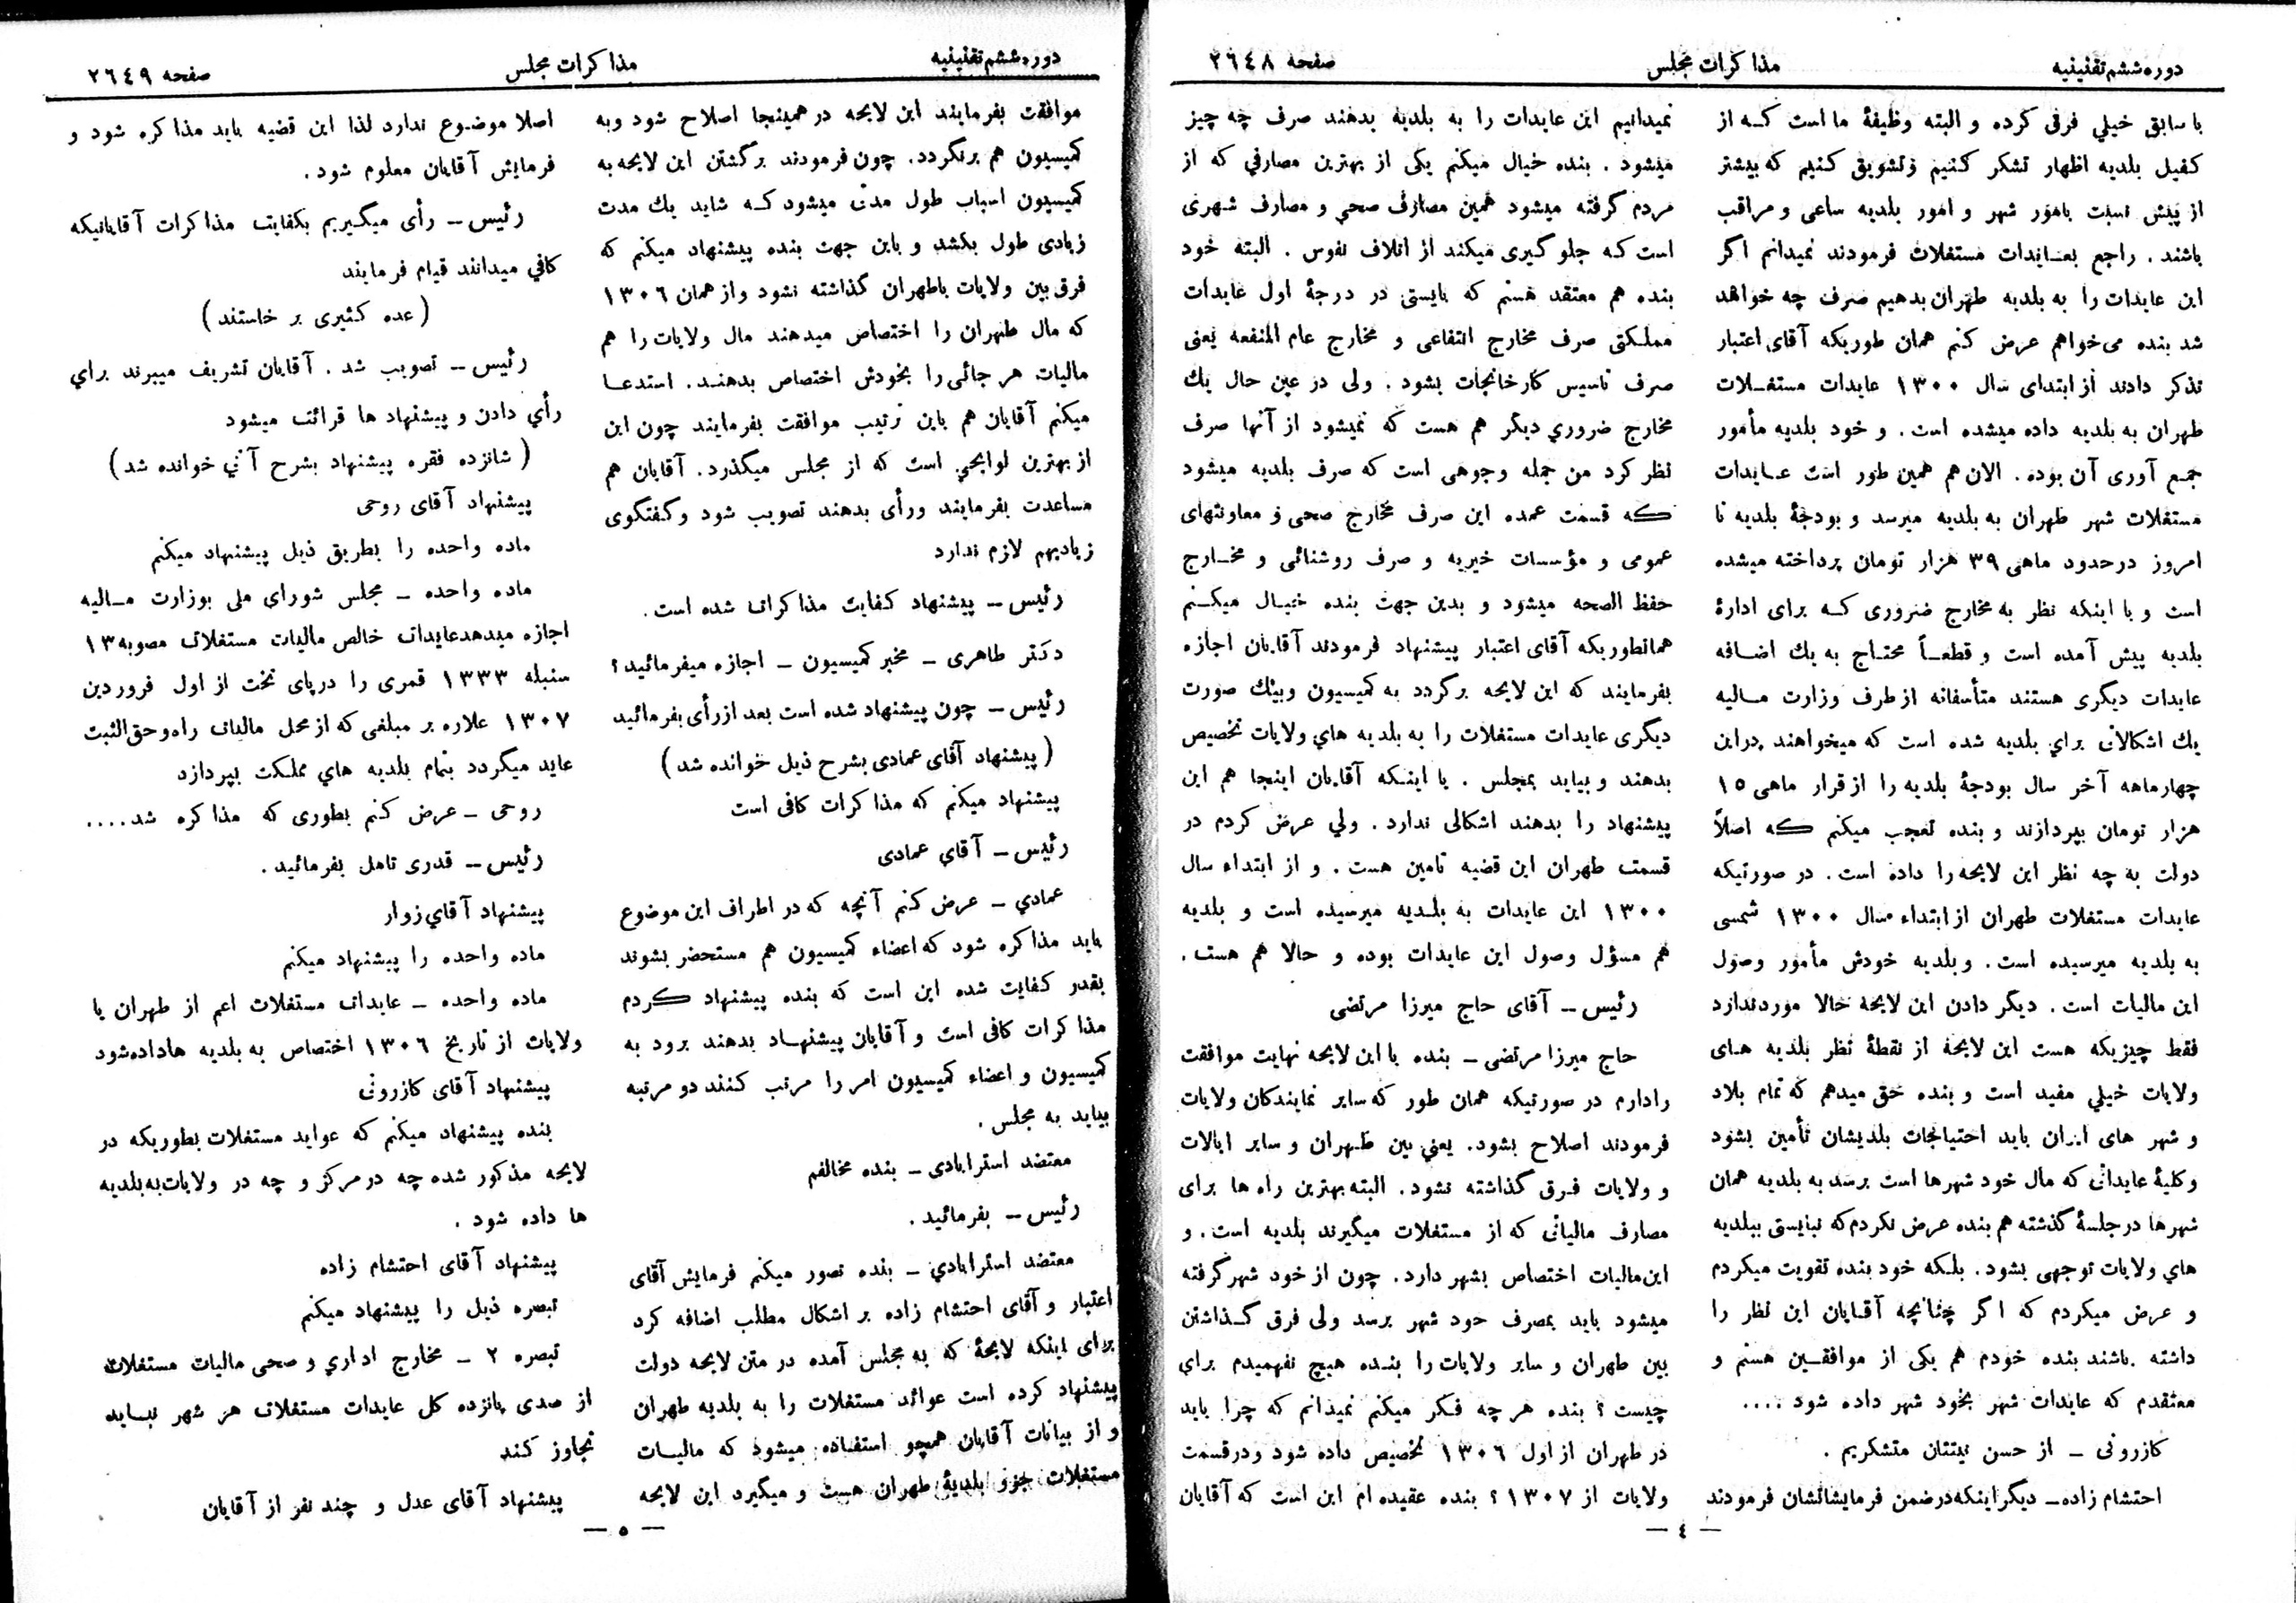 دوره ششم تقنینیه
مذاکرات مجلس
صفحه ۲۶٤۸
با سابق خیلي فرقی کرده و البته وظیفهٔ ما است که از
کفیل بلدیه اظهار تشکر کنیم و تشویق کنیم که بیشتر
از پیش نسبت بامور شهر و امور بلدیه ساعی و مراقب
باشند . راجع بعایدات مستغلات فرمودند نمیدانم اگر
این عایدات را به بلدیه طهران بدهیم صرف چه خواهد
شد بنده می‌خواهم عرض کنم همان طوریکه آقای اعتبار
تذکر دادند از ابتدای سال ۱۳۰۰ عایدات مستغلات
طهران به بلدیه داده میشده است . و خود بلدیه مأمور
جمع آوری آن بوده . الان هم همین طور است عایدات
مستغلات شهر طهران به بلدیه میرسد و بودجهٔ بلدیه تا
امروز در حدود ماهی ۳۹ هزار تومان پرداخته میشده
است و با اینکه نظر به مخارج ضروری که برای ادارهٔ
بلدیه پیش آمده است و قطعاً محتاج به یك اضافه
عایدات دیگری هستند متأسفانه از طرف وزارت مالیه
یك اشکالاتی براي بلدیه شده است که میخواهند در این
چهار ماهه آخر سال بودجهٔ بلدیه را از قرار ماهی ۱۵
هزار تومان بپردازند و بنده تعجب میکنم که اصلاً
دولت به چه نظر این لایحه را داده است . در صورتیکه
عایدات مستغلات طهران از ابتداء سال ۱۳۰۰ شمسی
به بلدیه میرسیده است . و بلدیه خودش مأمور وصول
این مالیات است . دیگر دادن این لایحه حالا مورد ندارد
فقط چیزیکه هست این لایحه از نقطهٔ نظر بلدیه های
ولایات خیلي مفید است و بنده حق میدهم که تمام بلاد
و شهر های ایران باید احتیاجات بلدیشان تأمین بشود
وکلیهٔ عایداتی که مال خود شهرها است برسد به بلدیه همان
شهرها در جلسهٔ گذشته هم بنده عرض نکردم که نبایستی ببلدیه
هاي ولایات توجهی بشود . بلکه خود بنده تقویت میکردم
و عرض میکردم که اگر چنانچه آقایان این نظر را
داشته باشند بنده خودم هم یکی از موافقین هستم و
معتقدم که عایدات شهر بخود شهر داده شود ....
کازرونی ــ از حسن نیتتان متشکریم .
احتشام زاده ــ دیگر اینکه در ضمن فرمایشاتشان فرمودند
نمیدانیم این عایدات را به بلدیه بدهند صرف چه چیز
میشود . بنده خیال میکنم یکی از بهترین مصارفي که از
مردم گرفته میشود همین مصارف صحی و مصارف شهری
است که جلوگیری میکند از اتلاف نفوس . البته خود
بنده هم معتقد هستم که بایستی در درجهٔ اول عایدات
مملکتی صرف مخارج انتفاعی و مخارج عام المنفعه یعنی
صرف تاسیس کارخانجات بشود . ولی در عین حال یك
مخارج ضروري دیگر هم هست که نمیشود از آنها صرف
نظر کرد من جمله وجوهی است که صرف بلدیه میشود
که قسمت عمده این صرف مخارج صحی و معاونتهای
عمومی و مؤسسات خیریه و صرف روشنائی و مخارج
حفظ الصحه میشود و بدین جهت بنده خیال میکنم
همانطوریکه آقای اعتبار پیشنهاد فرمودند آقایان اجازه
بفرمایند که این لایحه برگردد به کمیسیون و بیك صورت
دیگری عایدات مستغلات را به بلدیه هاي ولایات تخصیص
بدهند و بیاید بمجلس . یا اینکه آقایان اینجا هم این
پیشنهاد را بدهند اشکالی ندارد . ولي عرض کردم در
قسمت طهران این قضیه تامین هست . و از ابتداء سال
۱۳۰۰ این عایدات به بلدیه میرسیده است و بلدیه
هم مسؤل وصول این عایدات بوده و حالا هم هست .
رئیس ــ آقای حاج میرزا مرتضی
حاج میرزا مرتضی ــ بنده با این لایحه نهایت موافقت
را دارم در صورتیکه همان طور که سایر نمایندکان ولایات
فرمودند اصلاح بشود . یعنی بین طهران و سایر ایالات
و ولایات فرق گذاشته نشود . البته بهترین راه ها برای
مصارف مالیاتی که از مستغلات میگیرند بلدیه است . و
این مالیات اختصاص بشهر دارد . چون از خود شهر گرفته
میشود باید بمصرف خود شهر برسد ولی فرق گذاشتن
بین طهران و سایر ولایات را بنده هیچ نفهمیدم برای
چیست ؟ بنده هر چه فکر میکنم نمیدانم که چرا باید
در طهران از اول ۱۳۰۶ تخصیص داده شود و در قسمت
ولایات از ۱۳۰۷ ؟ بنده عقیده ام این است که آقایان
— ٤ —
دوره ششم تقنینیه
مذاکرات مجلس
صفحه ۲۶٤۹
موافقت بفرمایند این لایحه در همینجا اصلاح شود وبه
کمیسیون هم برنگردد . چون فرمودند برگشتن این لایحه به
کمیسیون اسباب طول مدت میشود که شاید یك مدت
زیادی طول بکشد و باین جهت بنده پیشنهاد میکنم که
فرق بین ولایات با طهران گذاشته نشود و از همان ۱۳۰۶
که مال طهران را اختصاص میدهند مال ولایات را هم
مالیات هر جائی را بخودش اختصاص بدهند . استدعا
میکنم آقایان هم باین ترتیب موافقت بفرمایند چون این
از بهترین لوایحی است که از مجلس میگذرد . آقایان هم
مساعدت بفرمایند ورأی بدهند تصویب شود و گفتگوی
زیادیهم لازم ندارد
رئیس ــ پیشنهاد کفایت مذاکرات شده است .
دکتر طاهری ــ مخبر کمیسیون ــ اجازه میفرمائید ؟
رئیس ــ چون پیشنهاد شده است بعد از رأی بفرمائید
( پیشنهاد آقای عمادی بشرح ذیل خوانده شد )
پیشنهاد میکنم که مذاکرات کافی است
رئیس ــ آقاي عمادی
عمادي ــ عرض کنم آنچه که در اطراف این موضوع
باید مذاکره شود که اعضاء کمیسیون هم مستحضر بشوند
بقدر کفایت شده این است که بنده پیشنهاد کردم
مذاکرات کافی است و آقایان پیشنهاد بدهند برود به
کمیسیون و اعضاء کمیسیون امر را مرتب کنند دو مرتبه
بیاید به مجلس .
معتضد استرابادی ــ بنده مخالفم
رئیس ــ بفرمائید .
معتضد استرابادي ــ بنده تصور میکنم فرمایش آقای
اعتبار و آقای احتشام زاده بر اشکال مطلب اضافه کرد
برای اینکه لایحهٔ که به مجلس آمده در متن لایحه دولت
پیشنهاد کرده است عوائد مستغلات را به بلدیه طهران
و از بیانات آقایان همچو استفاده میشود که مالیات
مستغلات جزو بلدیهٔ طهران هست و میگیرد این لایحه
اصلا موضوع ندارد لذا این قضیه باید مذاکره شود و
فرمایش آقایان معلوم شود .
رئیس ــ رأی میگیریم بکفایت مذاکرات آقایانیکه
کافي میدانند قیام فرمایند
( عده کثیری بر خاستند )
رئیس ــ تصویب شد . آقایان تشریف میبرند براي
رأي دادن و پیشنهاد ها قرائت میشود
( شانزده فقره پیشنهاد بشرح آتي خوانده شد )
پیشنهاد آقای روحی
ماده واحده را بطریق ذیل پیشنهاد میکنم
ماده واحده ــ مجلس شورای ملی بوزارت مالیه
اجازه میدهد عایدات خالص مالیات مستغلات مصوبه ۱۳
سنبله ۱۳۳۳ قمری را در پای تخت از اول فروردین
۱۳۰۷ علاره بر مبلغی که از محل مالیات راه و حق الثبت
عاید میگردد بتمام بلدیه هاي مملکت بپردازد
روحی ــ عرض کنم بطوری که مذاکره شد ....
رئیس ــ قدری تامل بفرمائید .
پیشنهاد آقاي زوار
ماده واحده را پیشنهاد میکنم
ماده واحده ــ عایدات مستغلات اعم از طهران یا
ولایات از تاریخ ۱۳۰۶ اختصاص به بلدیه ها داده شود
پیشنهاد آقای کازرونی
بنده پیشنهاد میکنم که عواید مستغلات بطوریکه در
لایحه مذکور شده چه در مرکز و چه در ولایات به بلدیه
ها داده شود .
پیشنهاد آقای احتشام زاده
تبصره ذیل را پیشنهاد میکنم
تبصره ۲ ــ مخارج اداري و صحی مالیات مستغلات
از صدی پانزده کل عایدات مستغلات هر شهر نباید
تجاوز کند
پیشنهاد آقای عدل و چند نفر از آقایان
— ۵ —